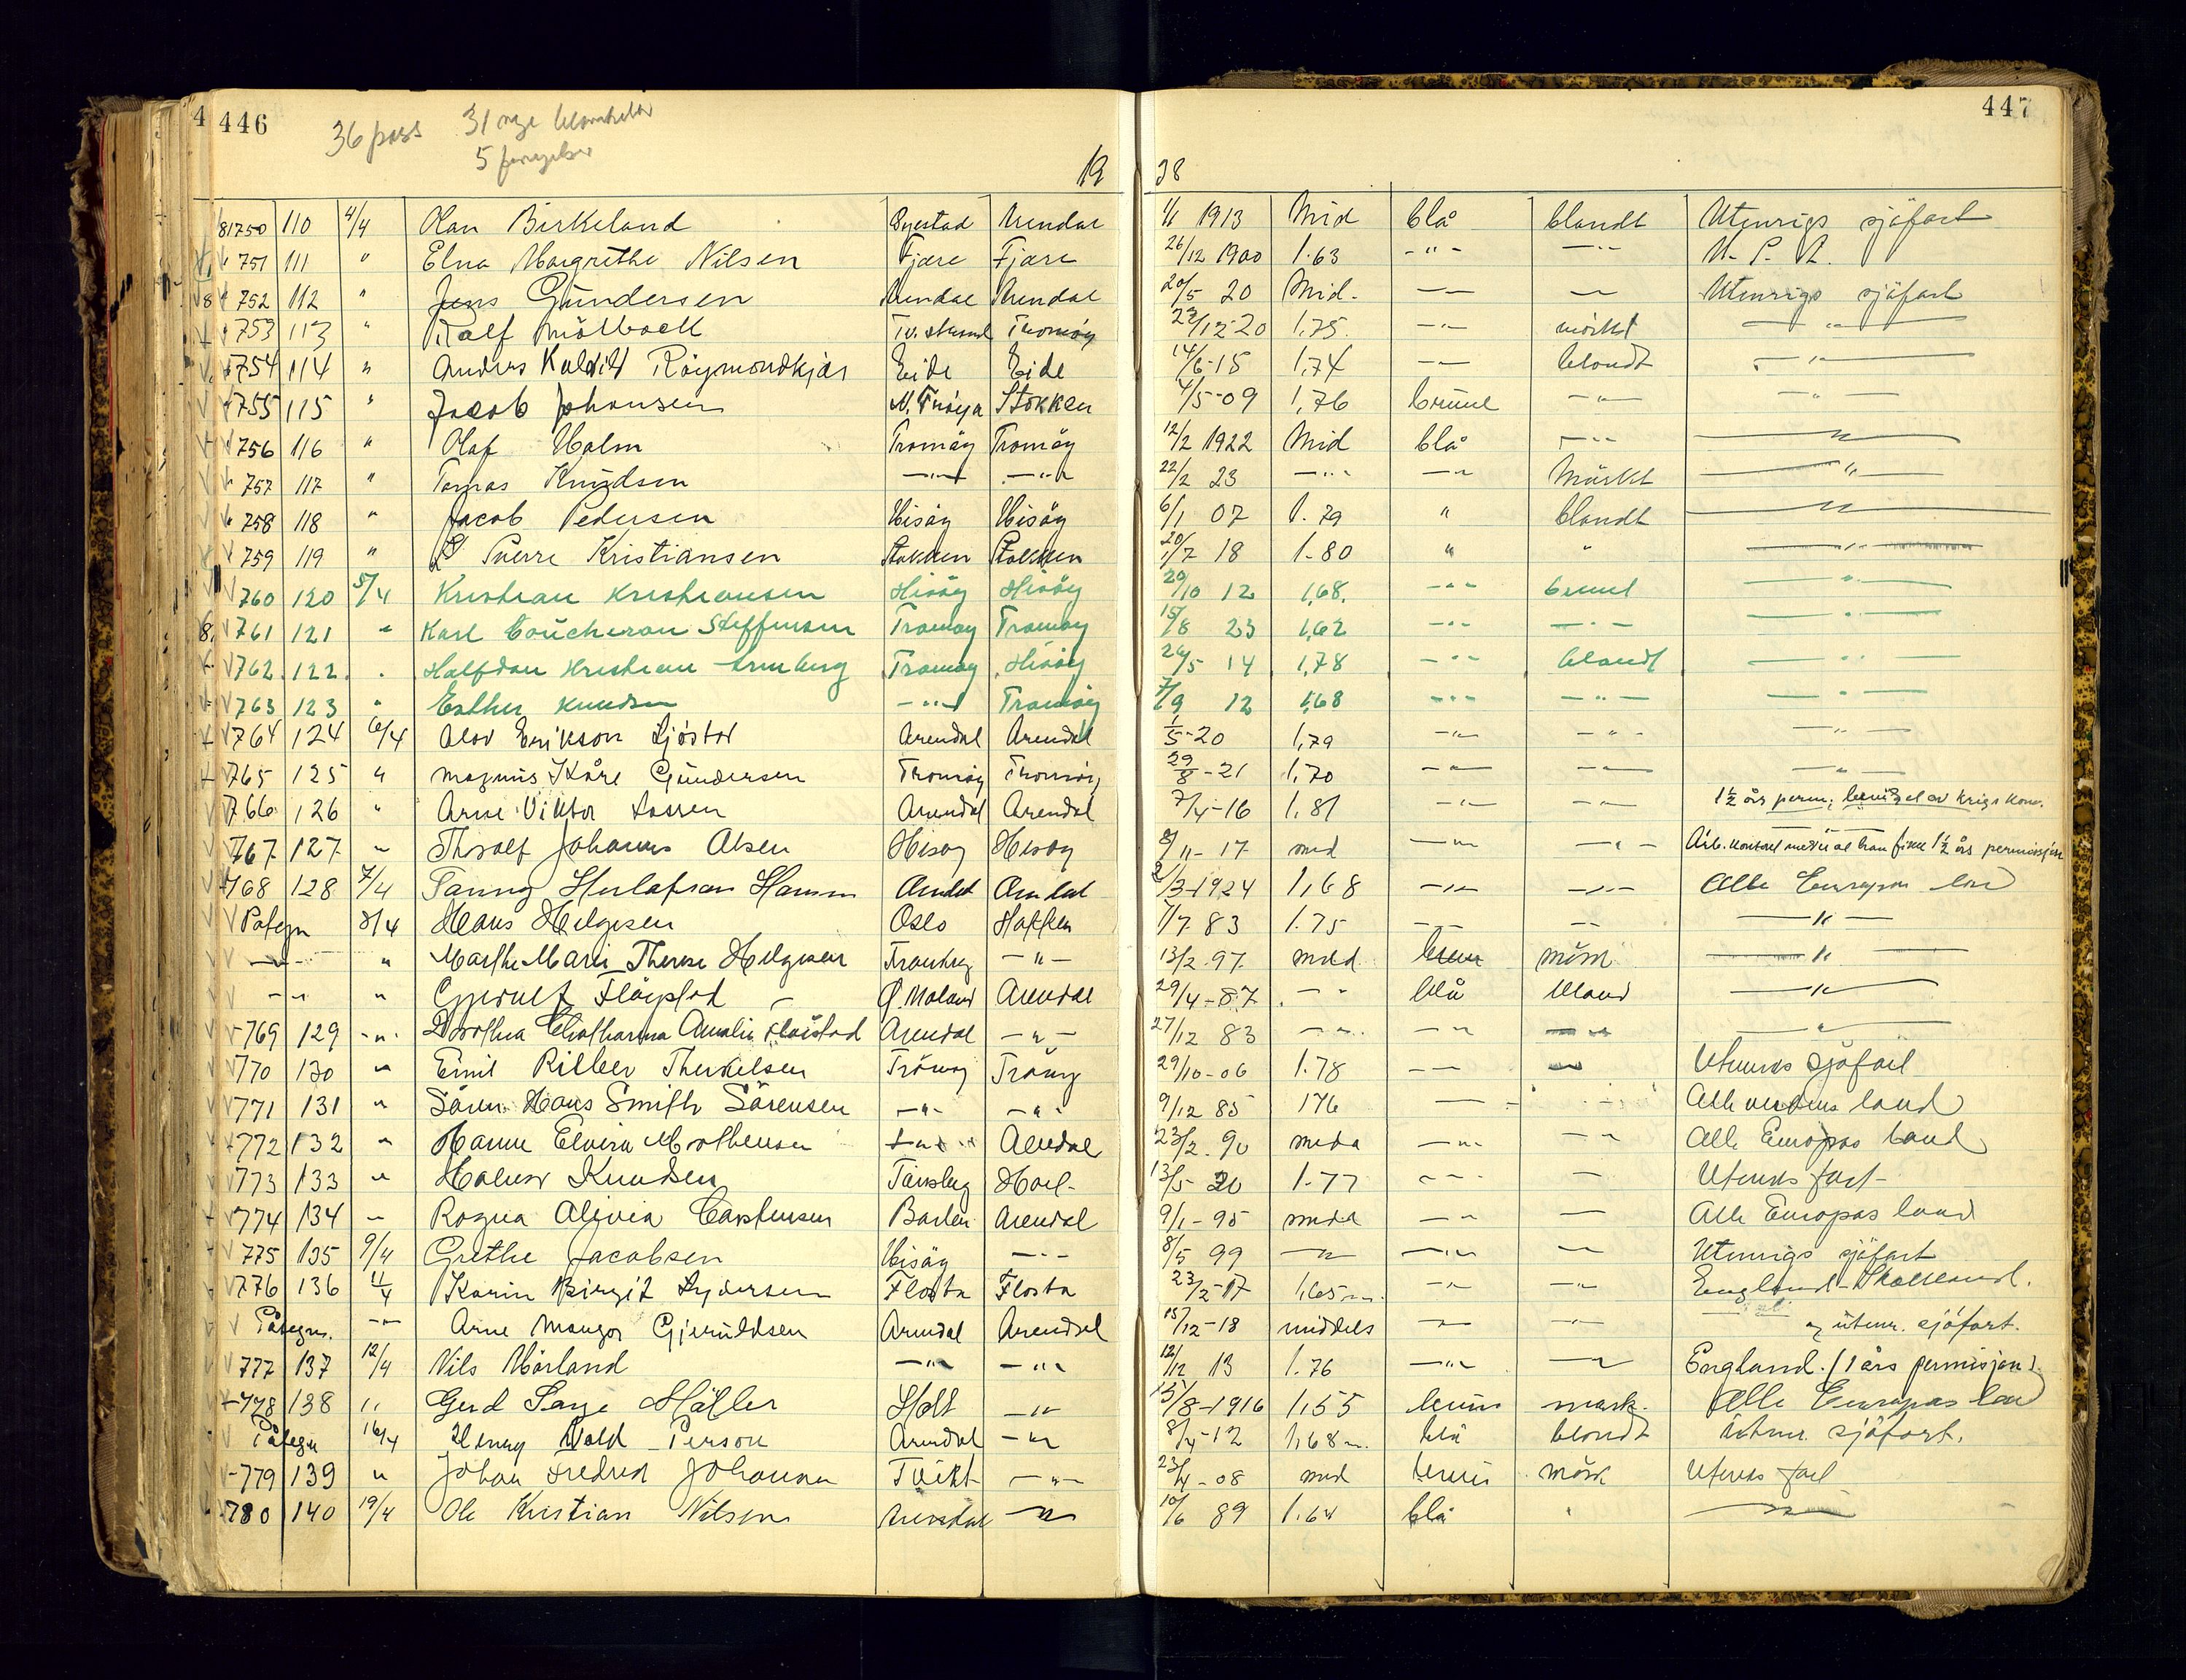 446
447
36 pass 31 nye
5
19 38
81750 110 4/4 Olav Birkeland Øyestad Arendal 1/1 1913 Mid blå blondt Utenrigs sjöfart
751 111 " Elna Margrethe Nilsen Fjære Fjære 26/12 1900 1.63 -"- -"- U. S. A.
752 112 " Jens Gundersen Arendal Arendal 20/5 20 Mid. -"- -"- Utenrigs sjöfart
753 113 " Rolf Mölback Tv.strand Tromöy 23/12-20 1,75. -"- mörkt -"-
754 114 " Anders Röymondkjær Eide Eide 14/6-15 1,74 -"- blondt -"-
755 115 " Jacob Johansen Stokken 4/5-09 1,76 brune -"- -"-
756 116 " Olaf Holm Tromöy Tromöy 12/2 1922 Mid blå -"- -"-
757 117 " Tomas Knudsen -"- -"- 22/2 23 -"- -"- Mörkt -"-
758 118 " Jacob Pedersen Hisöy Hisöy 6/1 07 1.79 " blondt -"-
759 119 " Sverre Kristiansen Stokken Stokken 20/7 18 1.80 " " -"-
760 120 5/4 Kristian Kristiansen Hisöy Hisöy 29/10 12 1,68. -"- brunt -"-
761 121 " Karl Coucheron Steffensen Tromöy Tromöy 15/8 23 1,62 -"- -"- -"-
762 122 " Halfdan Kristian Tromöy Hisöy 26/5 14 1,78 -"- blondt -"-
763 123 " Esther Knudsen -"- Tromöy 7/9 12 1,68 -"- -"- -"-
764 124 6/4 Olov Erikson Sjöstad Arendal Arendal 1/5-20 1,79 -"- -"- -"-
765 125 " Magnus Kåre Gundersen Tromöy Tromöy 29/8-21 1,70 -"- -"- -"-
766 126 " Arne Viktor Lassen Arendal Arendal 7/4-16 1,81 -"- -"- 1½ års perm.
767 127 " Thoralf Johannes Olsen Hisøy Hisøy 8/11-17 mid -"- -"- han fikk 1½ års permisjon
768 128 7/4 Arendal Arendal 2/3-1924 1,68 -"- -"- Alle Europas land
Påtegn 8/4 Hans Helgesen Oslo 7/7 83 1.75 -"- -"- -"-
-"- " Marthe Marie Therese Helgesen -"- 13/2-97 midd mörk -"-
-"- " Gjerulf Fløistad Ø. Moland Arendal 29/4-87 -"- blå blond -"-
769 129 -"- Dorothea Chatharina Amalie Fløistad Arendal -"- 27/12 83 -"- -"- -"- -"-
770 130 " Emil Rilber Therkelsen Trömøy Trömøy 29/10-06 1.78 -"- -"- Utenriks sjøfart
771 131 " Sören Hans Smith Sörensen -"- -"- 9/12 85 176 -"- -"- Alle verdens land
772 132 " Hanne Elvira -"- Arendal 23/2-90 midd -"- -"- Alle Europas land
773 133 " Knudsen Tønsberg 13/5 20 1.77 -"- - Utenriks fart
774 134 " Ragna Alivia Carstensen Arendal 9/1-95 midd -"- - Alle Europas land
775 135 9/4 Grethe Jacobsen Hisöy -"- 8/5 99 -"- -"- -"- Utenrigs sjöfart
776 136 11/4 Karin Birgit Lydersen Flosta Flosta 23/2-17 1,65 m. -"- -"- England - Skottland.
Påtegn. -"- Arne Mangor Gjeruldsen Arendal Arendal 15/12-18 middels -"- -"- og utenr. sjöfart.
777 137 12/4 Nils Hörland -"- -"- 12/12 13 1.76 -"- -"- England. (1 års permisjon).
778 138 " Gerd Holt -"- 15/8-1916 1,55 brune mørk. Alle Europas land
Påtegn 16/4 Henry Wold Person Arendal -"- 8/4-12 1,68 m. blå blondt utenr. sjöfart.
779 139 " Johan Fredrik Johannsen Tveit -"- 23/4-08 mid brune mörk Utenriks fart
780 140 19/4 Ole Kristian Nilsen Arendal -"- 10/6 89 1.64 blå " -"-